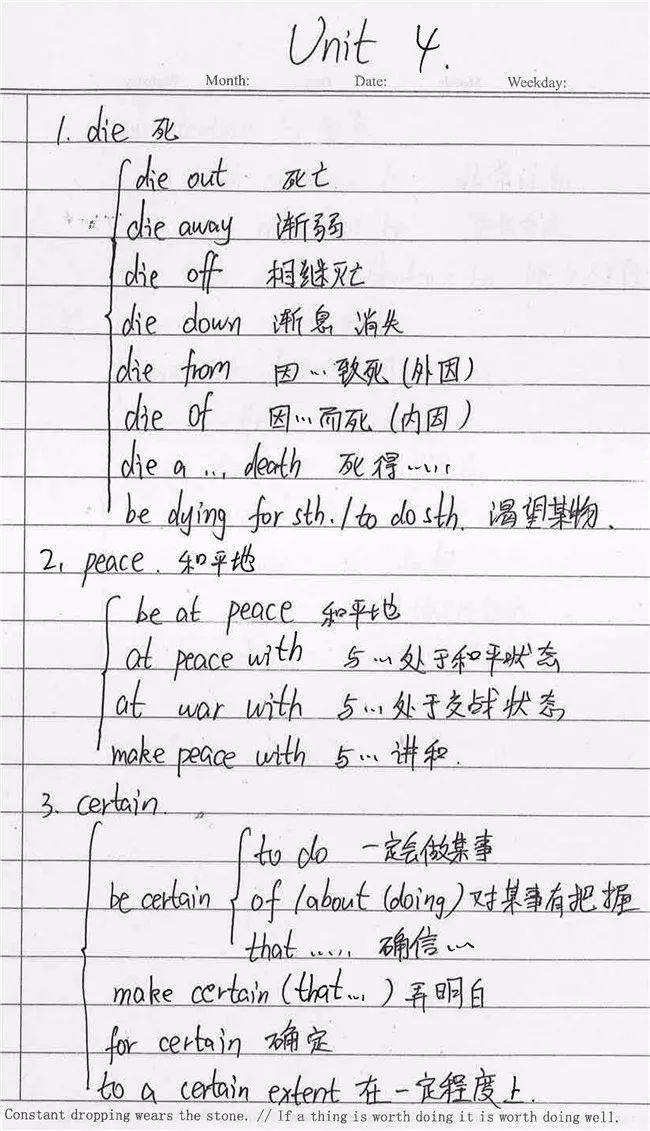 Unit 4.
Month: Date: Weekday:
1. die 死
die out 死亡
die away 渐弱
die off 相继灭亡
die down 渐息 消失
die from 因...致死(外因)
die of 因...而死(内因)
die a ... death 死得......
be dying for sth. / to do sth. 渴望某物.
2. peace. 和平地
be at peace 和平地
at peace with 与...处于和平状态
at war with 与...处于交战状态
make peace with 与...讲和.
3. certain.
to do 一定会做某事
be certain of /about (doing) 对某事有把握
that ...... 确信...
make certain (that...) 弄明白
for certain 确定
to a certain extent 在一定程度上.
Constant dropping wears the stone. // If a thing is worth doing it is worth doing well.